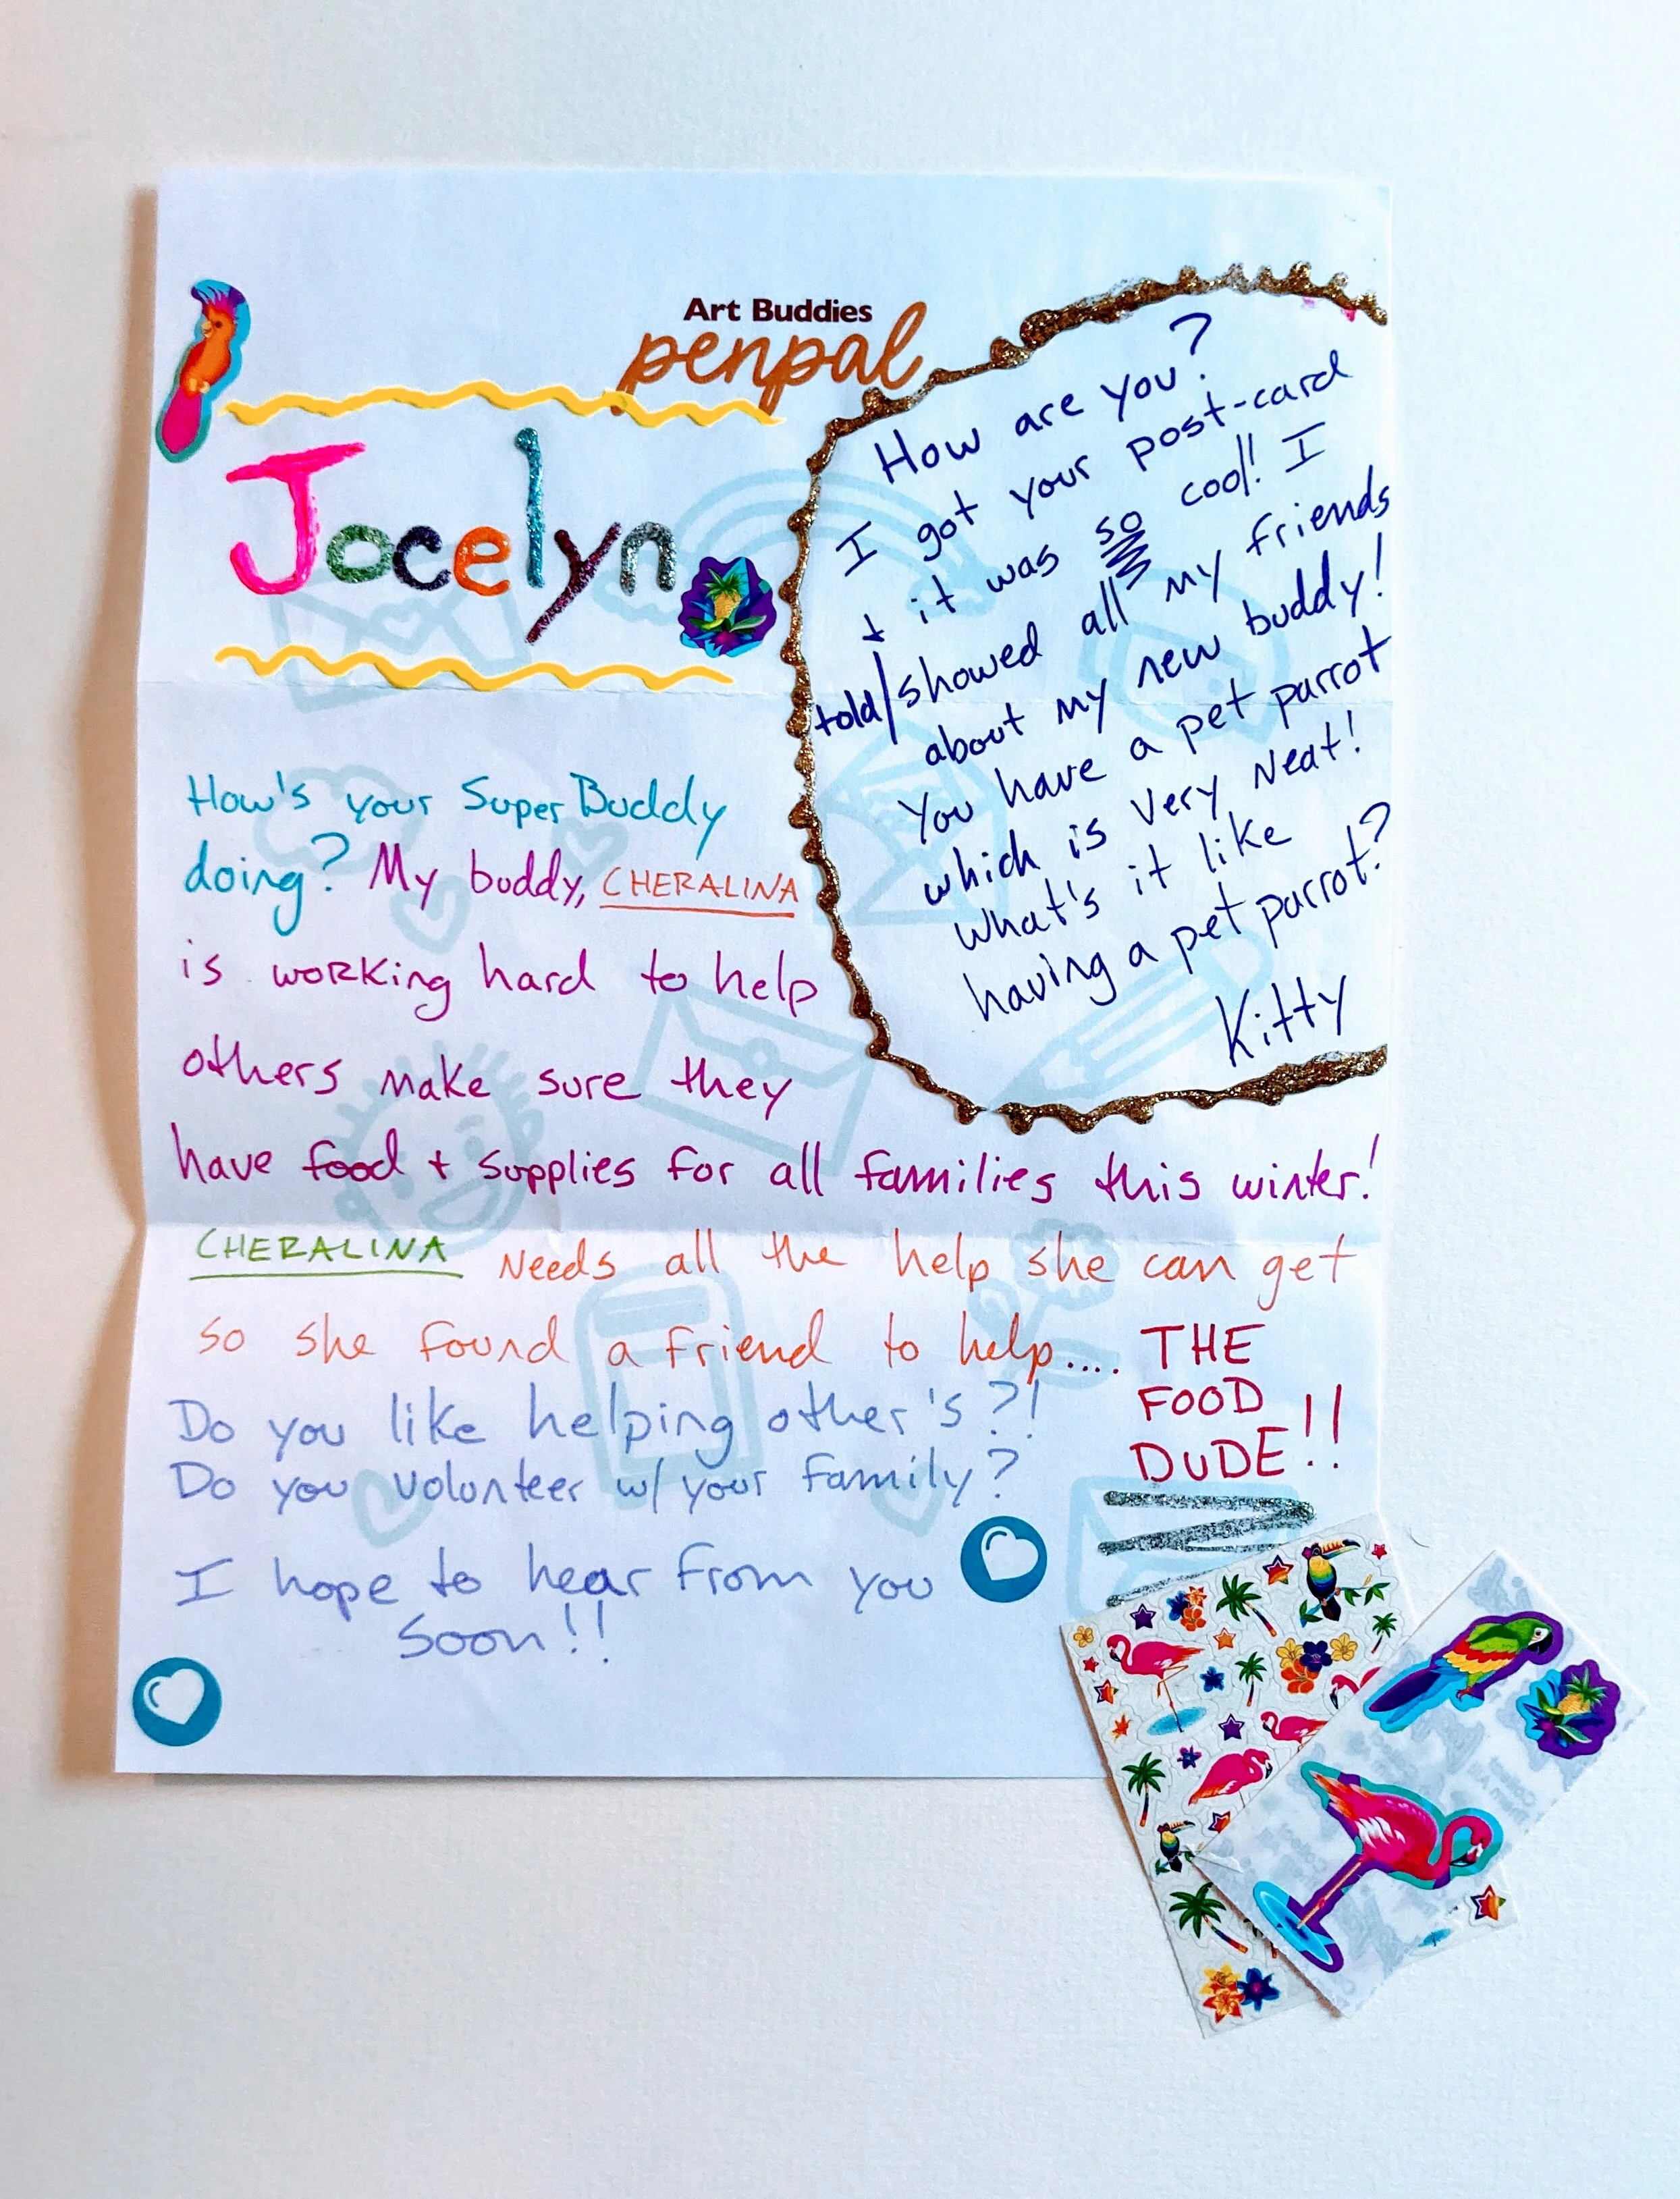 Art Buddies
penpal
Jocelyn
How are you?
I got your post-card
+ it was so cool! I
told/showed all my friends
about my new buddy!
You have a pet parrot
which is very neat!
What's it like
having a pet parrot?
Kitty
How's your Super Buddy
doing? My buddy, CHERALINA
is working hard to help
others make sure they
have food + supplies for all families this winter!
CHERALINA Needs all the help she can get
so she found a friend to help.... THE
FOOD
DUDE!!
Do you like helping other's?!
Do you volunteer w/ your family?
I hope to hear from you
soon!!